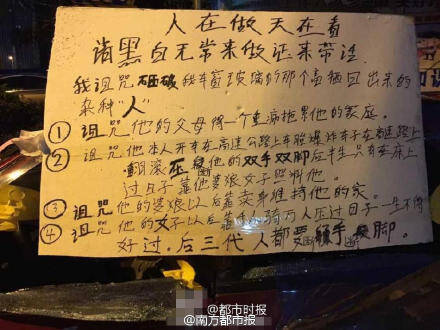 人在做天在看
请黑白无常来做证来带话
我诅咒砸破我车窗玻璃的那个畜牲日出来的
杂种"人"
① 诅咒他的父母得一个重病拖累他的家庭。
② 诅咒他本人开车在高速公路上车胎爆炸车子在高速路上
翻滚压 他的双手双脚后半生只有在床上
过日子靠他婆娘女子照料他。
③ 诅咒他的婆娘以后靠卖 维持他的家。
④ 诅咒他的女子以后 万人压过日子一生不得
好过.后三代人都要 手 脚.
@都市时报
@南方都市报